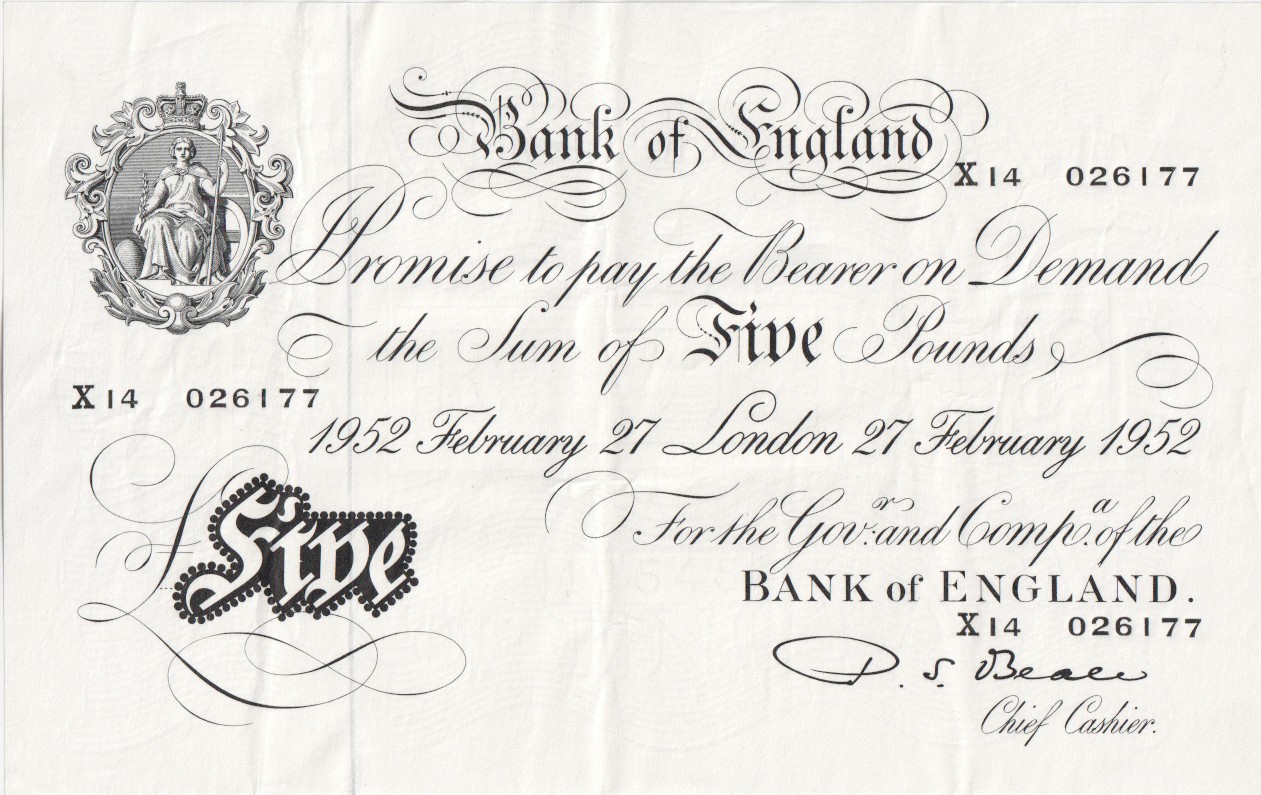 Bank of England
X 14 026177
I Promise to pay the Bearer on Demand
the Sum of Five Pounds
X 14 026177
1952 February 27 London 27 February 1952
For the Gov.r and Comp.a of the
BANK of ENGLAND.
£ Five
X 14 026177
P. S. Beale
Chief Cashier.